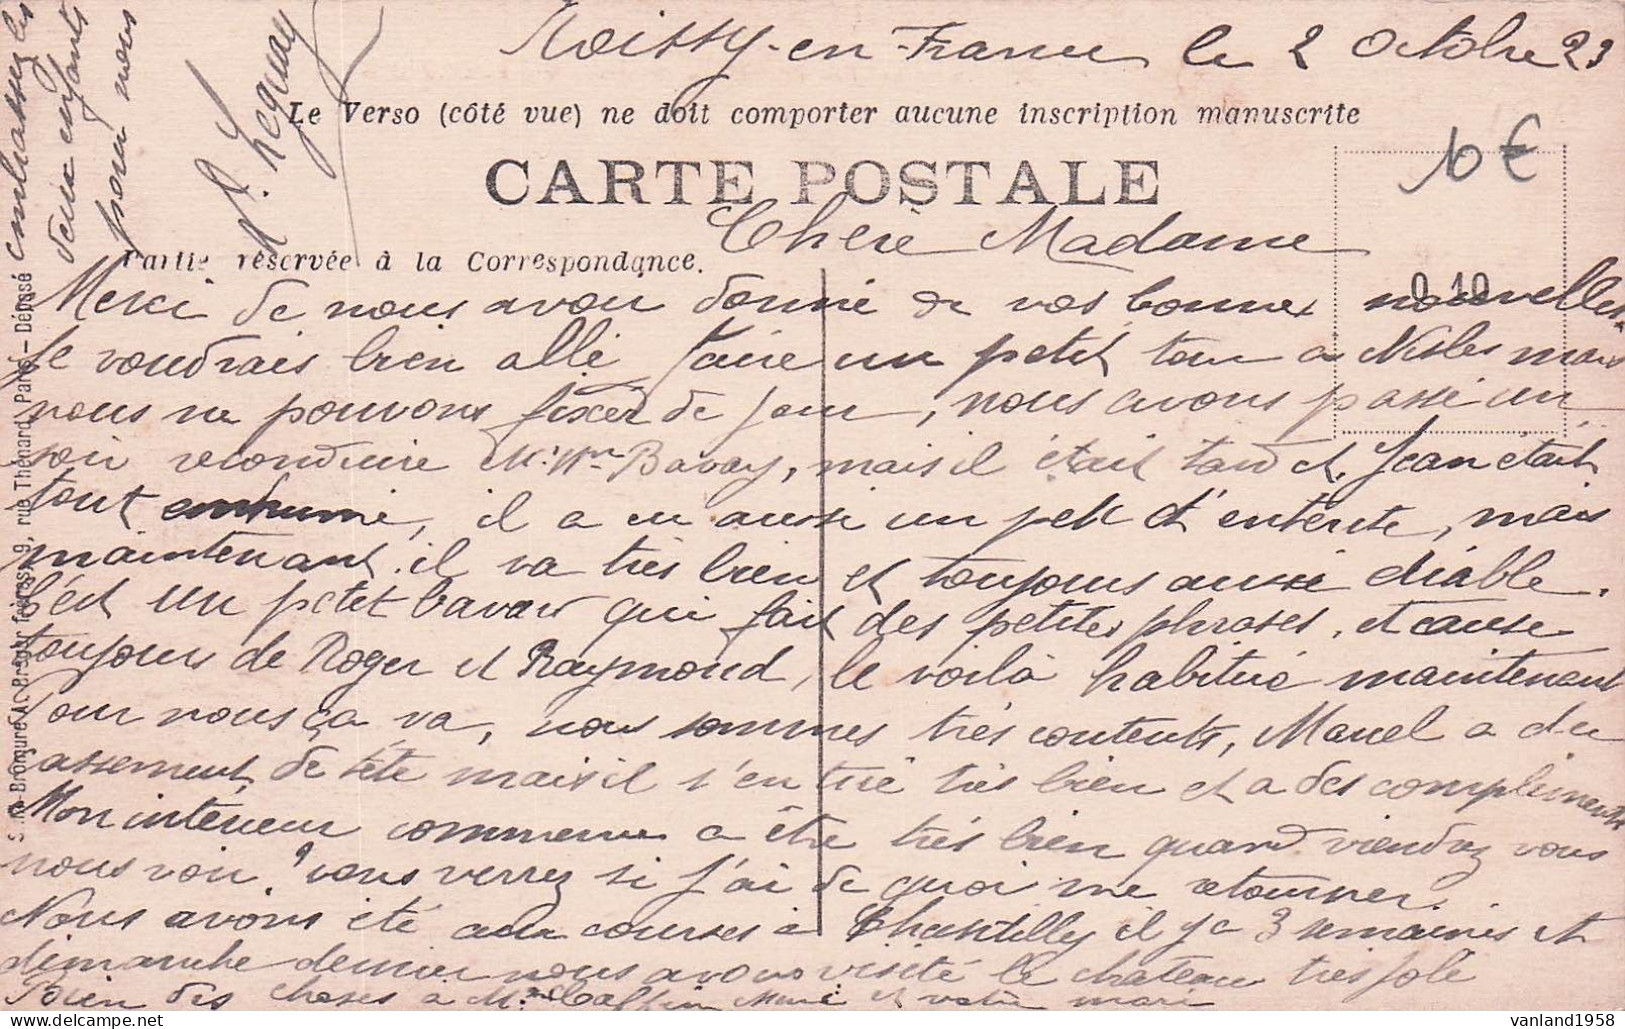 Roissy-en-France le 2 Octobre 23
Le Verso (côté vue) ne doit comporter aucune inscription manuscrite
6€
CARTE POSTALE
Chere Madame
Partie réservée à la Correspondance.
0.10
Merci de nous avoir donné de vos bonnes nouvelles
Je voudrais bien allé faire un petit tour a Nesles mais
nous ne pouvons fixer de jour, nous avons passé un
soir reconduire Mr Mme Bavay, mais il était tard et Jean était
tout enrhumé, il a eu aussi un peu d'entérite, mais
maintenant il va très bien et toujours aussi diable.
C'est un petit bavard qui fait des petites phrases, et cause
toujours de Roger et Raymond, le voilà habitué maintenant
Pour nous ça va, nous sommes très contents, Marcel a du
cassement de tête mais il s'en tire très bien et a des compliments
Mon interieur commence a être très bien quand viendrez vous
nous voir ? vous verrez si j'ai de quoi me retourner.
Nous avons été aux courses à Chantilly il y a 3 semaines et
dimanche dernier nous avons visité le chateau très jolie
Bien des choses à Mme Caffin Mere et votre mari
embrassez les
deux enfants
pour nous
rue Thénard, Paris - Déposé
vanland1958